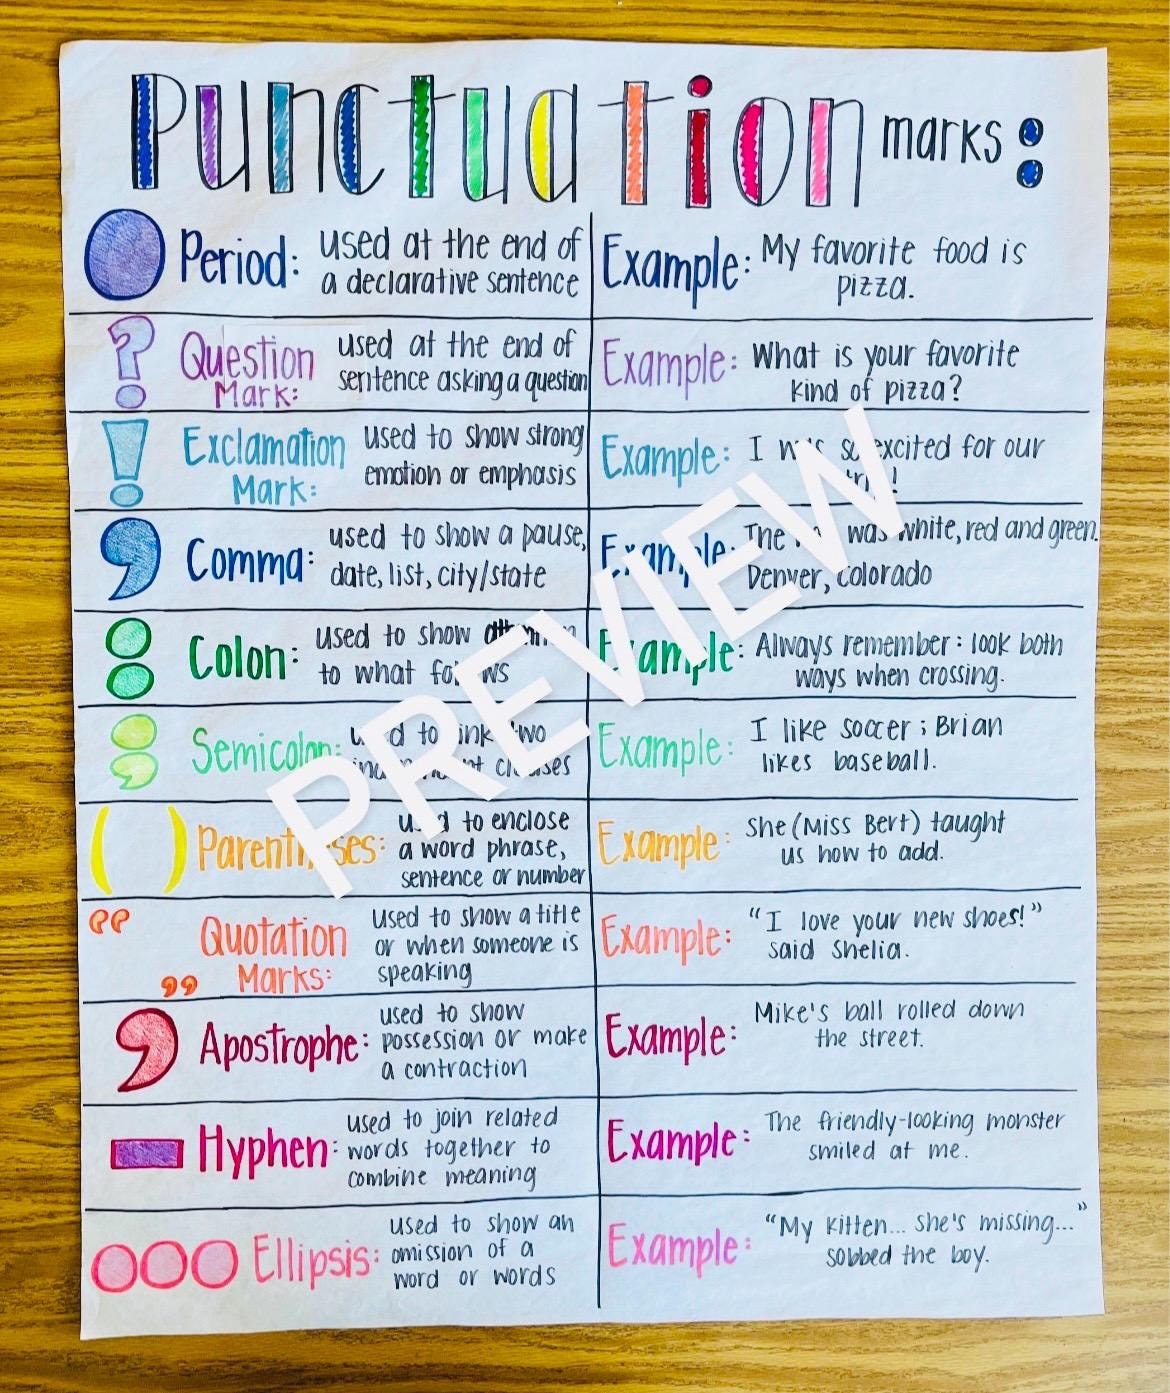 Punctuation marks:
Period: used at the end of
a declarative sentence
Example: My favorite food is
pizza.
Question
Mark:
used at the end of
sentence asking a question
Example: What is your favorite
kind of pizza?
Exclamation
Mark:
used to show strong
emotion or emphasis
Example: I was so excited for our
trip!
Comma: used to show a pause,
date, list, city/state
Example: The was white, red and green.
Denver, Colorado
Colon: used to show attention
to what follows
Example: Always remember: look both
ways when crossing.
Semicolon: used to link two
independent clauses
Example: I like soccer; Brian
likes baseball.
Parentheses: used to enclose
a word phrase,
sentence or number
Example: She (Miss Bert) taught
us how to add.
Quotation
Marks:
used to show a title
or when someone is
speaking
Example: "I love your new shoes!"
said Shelia.
Apostrophe: used to show
possession or make
a contraction
Example: Mike's ball rolled down
the street.
Hyphen: used to join related
words together to
combine meaning
Example: The friendly-looking monster
smiled at me.
Ellipsis: used to show an
omission of a
word or words
Example: "My kitten... she's missing..."
sobbed the boy.
PREVIEW